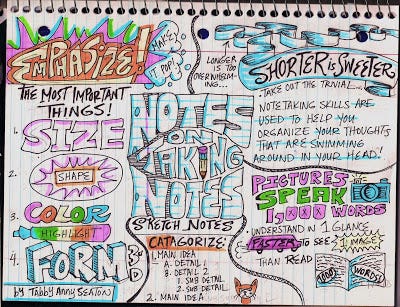 EMPHASIZE!
MAKE
IT POP!
THE MOST IMPORTANT
THINGS!
1. SIZE
2. SHAPE
3. COLOR
HIGHLIGHT
4. FORM 3-D
BY TABBY ANNY SEATON
NOTES
ON
TAKING
NOTES
SKETCH NOTES
CATAGORIZE:
1. MAIN IDEA
A. DETAIL 1
B. DETAIL 2
1. SUB DETAIL
2. SUB DETAIL
2. MAIN IDEA
LONGER
IS TOO
OVERWHELMING...
SHORTER is SWEETER
TAKE OUT THE TRIVIAL...
NOTETAKING SKILLS ARE
USED TO HELP YOU
ORGANIZE YOUR THOUGHTS
THAT ARE SWIMMING
AROUND IN YOUR HEAD!
PICTURES
SPEAK
WORDS
UNDERSTAND IN 1 GLANCE
FASTER TO SEE 1 IMAGE
THAN READ
WORDS!